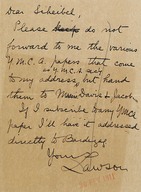 Dear Scheibel,
Please do not
forward to me the various
Y.M.C.A. papers that come
as Y.M.C. & sent
to my address, but hand
them to Davis & Jacob.
If I subscribe to any YMCA
paper I'll have it addressed
directly to
Yours
Lawson